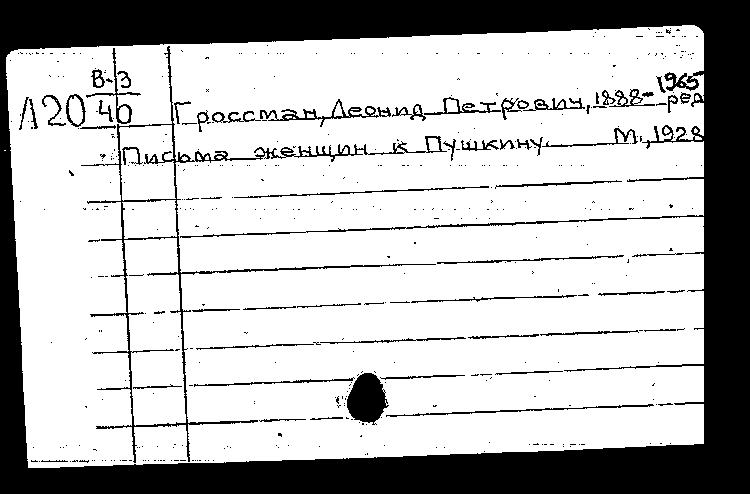 В-3
Л20 40 Гроссман, Леонид Петрович, 1888-1965 ред
Письма женщин к Пушкину. М., 1928